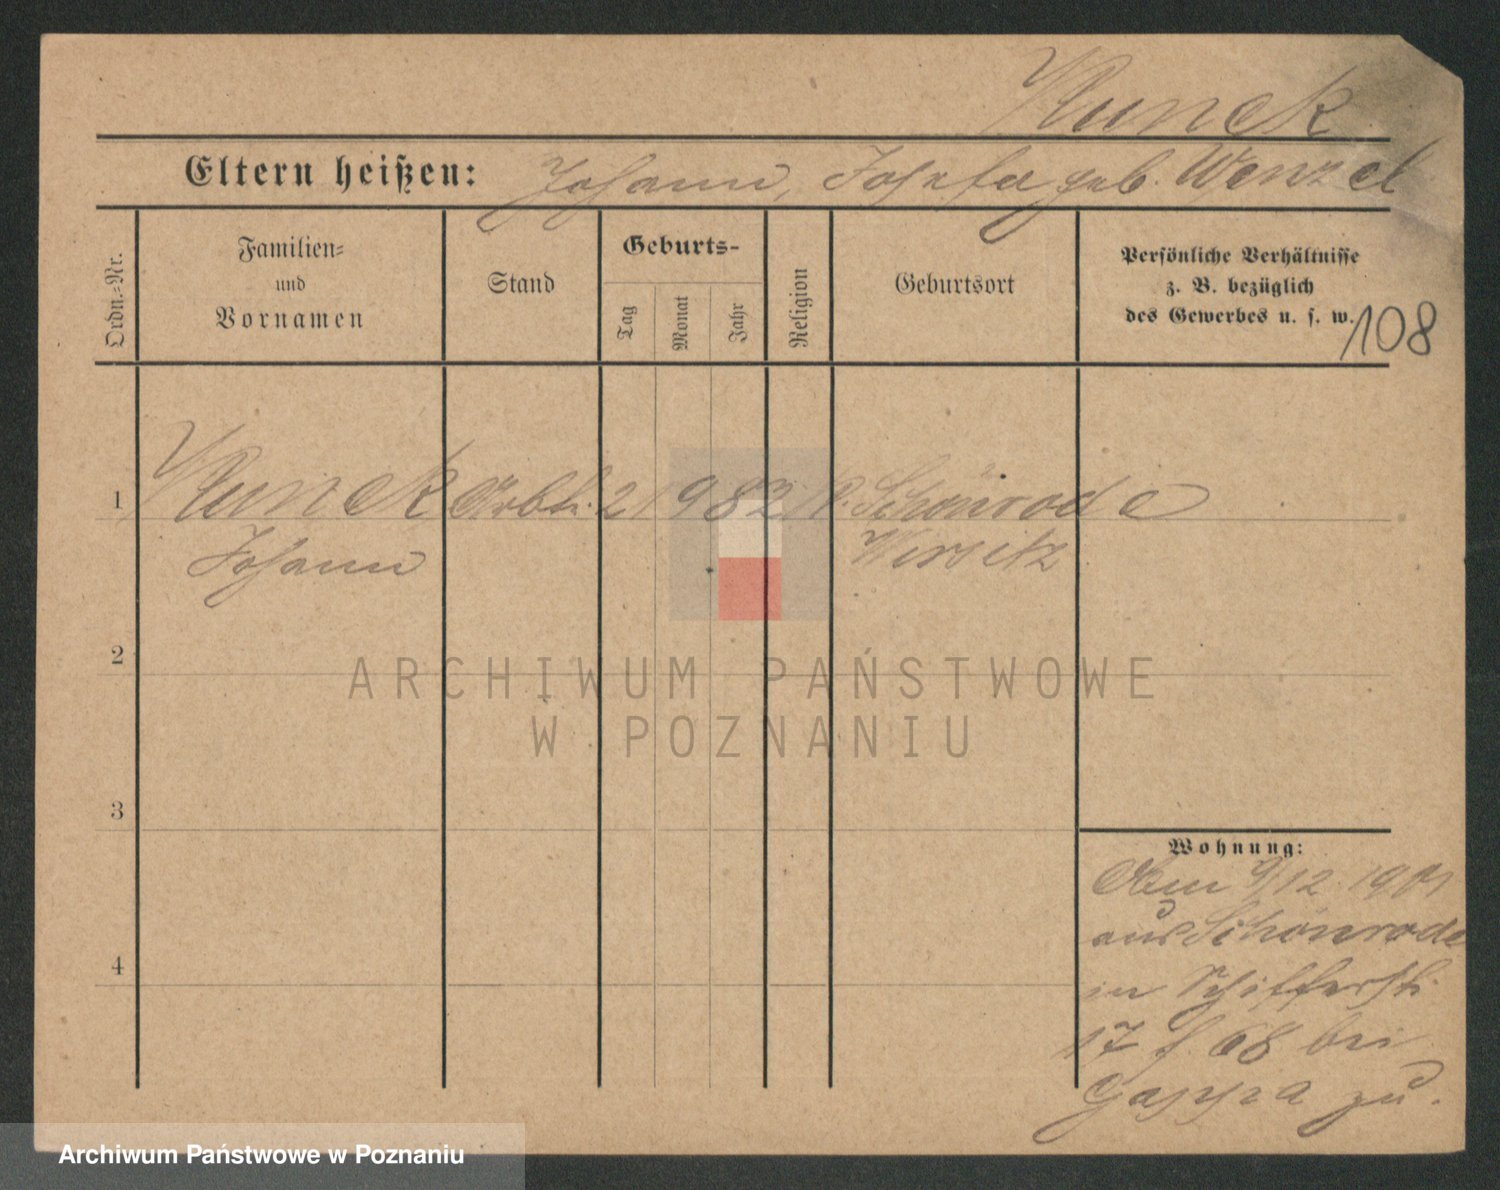 Kunek
Eltern heißen: Johann, Josefa geb. Wenzel
Ordn.-Nr.
Familien-
und
Vornamen
Stand
Geburts-
Tag
Monat
Jahr
Religion
Geburtsort
Persönliche Verhältnisse
z. B. bezüglich
des Gewerbes u. s. w.
108
1 Kunek Arbtr. 21 9 82 k. Schönrode
Johann Wirsitz
2
3
4
ARCHIWUM PAŃSTWOWE
W POZNANIU
Wohnung:
Am 9/12 1901
aus Schönrode
in Schifferstr.
17 f 68 bei
zu.
Archiwum Państwowe w Poznaniu